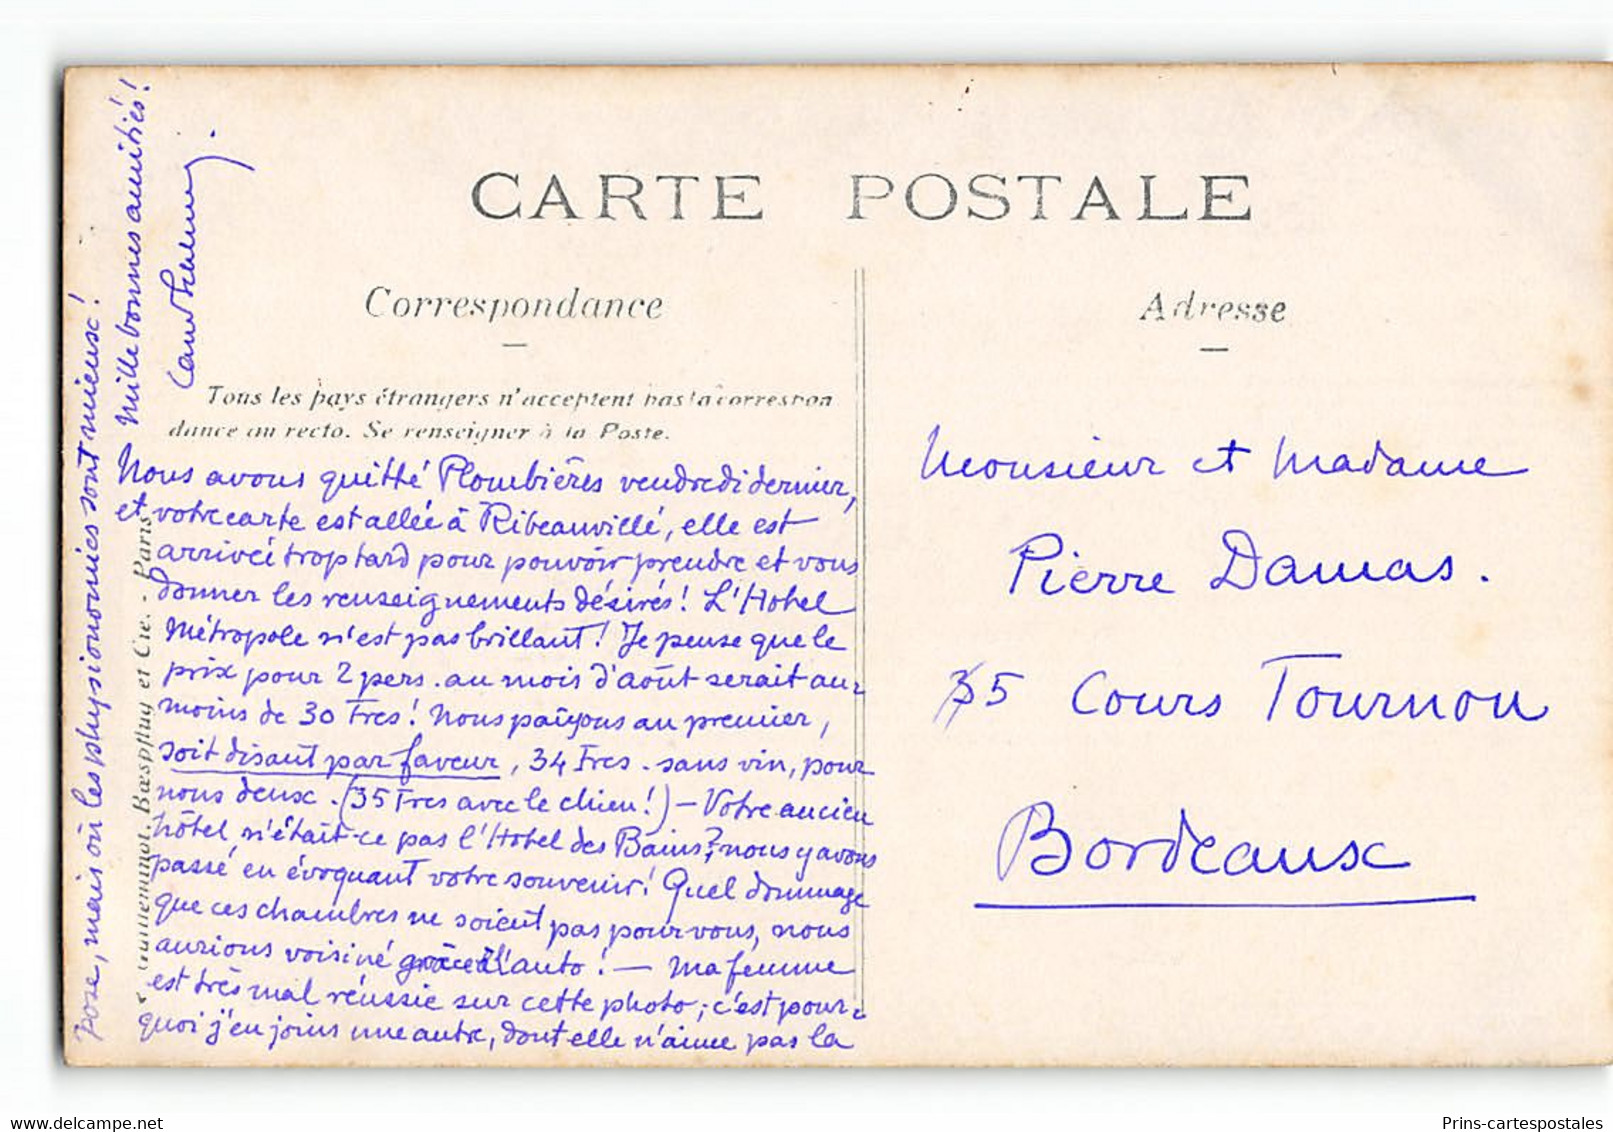 CARTE POSTALE
Correspondance
Adresse
Tous les pays étrangers n'acceptent pas la correspon
dance au recto. Se renseigner à la Poste.
Nous avons quitté Plombières vendredi dernier,
et votre carte est allée à Ribeauvillé, elle est
arrivée trop tard pour pouvoir prendre et vous
donner les renseignements désirés! L'Hotel
Métropole n'est pas brillant! Je pense que le
prix pour 2 pers. au mois d'août serait au-
moins de 30 Frcs! Nous payions au premier,
soit disant par faveur, 34 Frcs. sans vin, pour
nous deux. (35 Frcs avec le chien!) - Votre ancien
hôtel, n'était-ce pas l'Hotel des Bains? nous y avons
passé en évoquant votre souvenir! Quel dommage
que ces chambres ne soient pas pour vous, nous
aurions voisiné grâce à l'auto! - Ma femme
est très mal réussie sur cette photo; c'est pour-
quoi j'en joins une autre, dont elle n'aime pas la
pose, mais où les physionomies sont mieux!
Mille bonnes amitiés!
Monsieur et Madame
Pierre Damas.
35 Cours Tournon
Bordeaux
Guilleminot, Bœspflug et Cie. - Paris
delcampe.net
Prins-cartespostales